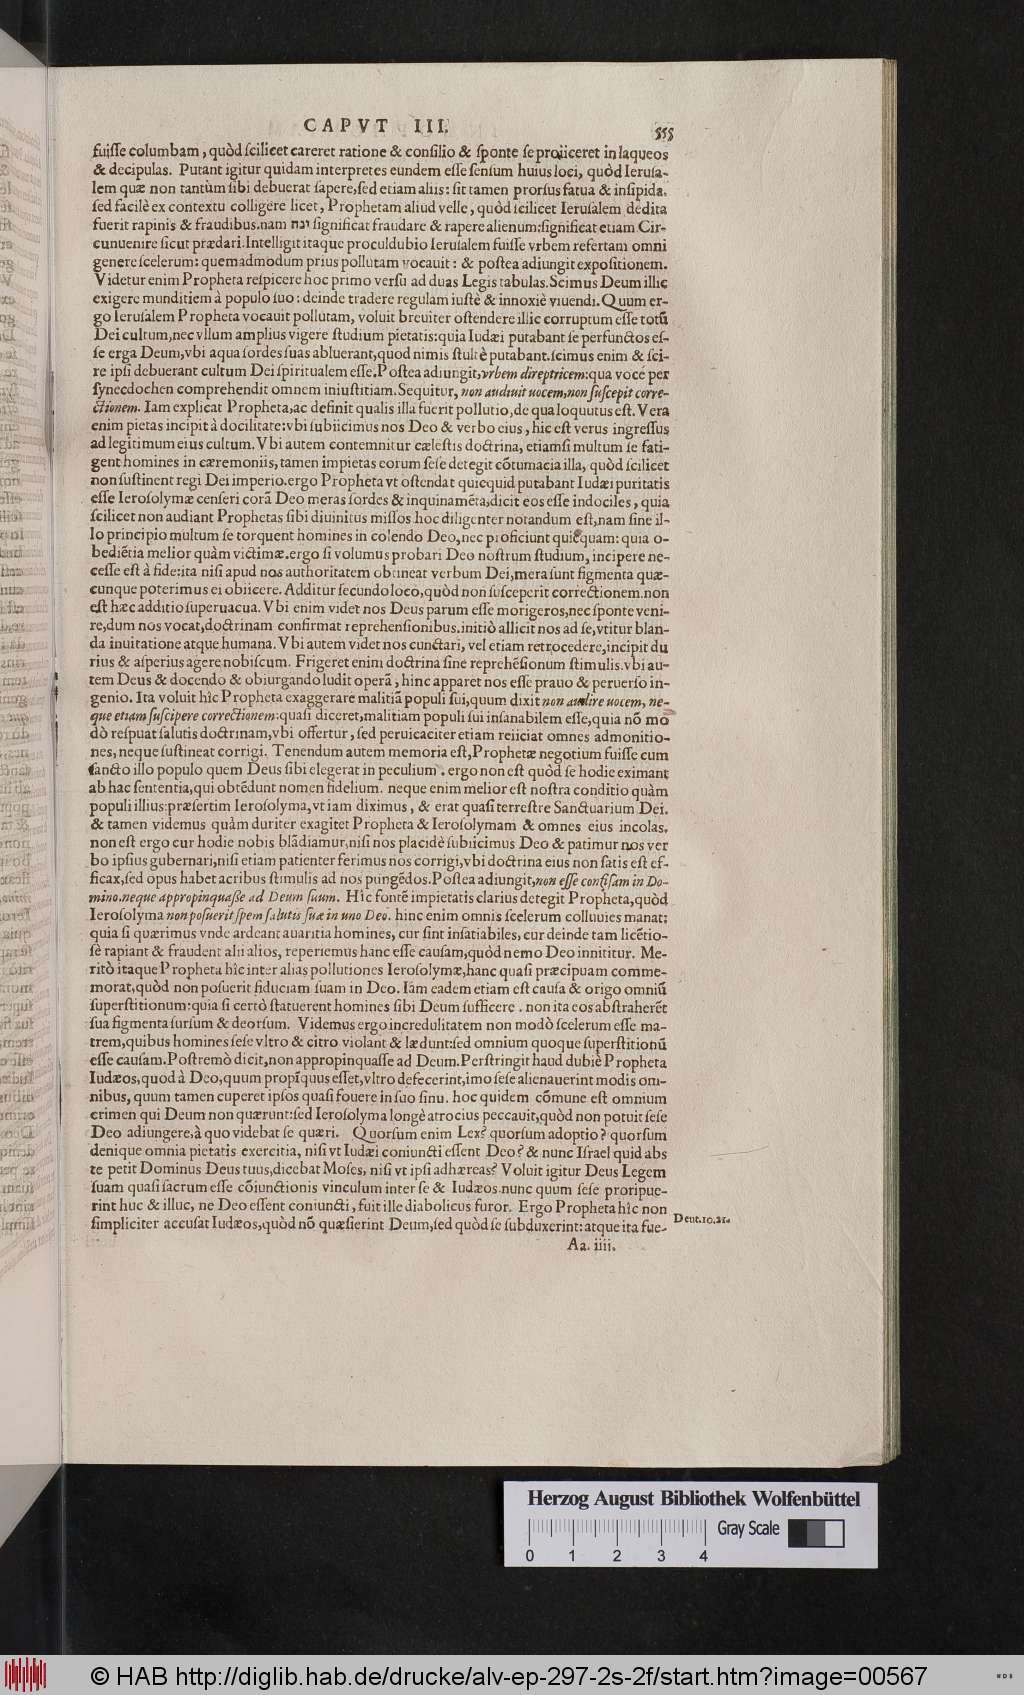 CAPVT III. 555
fuiſſe columbam, quòd ſcilicet careret ratione & conſilio & ſponte ſe proiiceret in laqueos
& decipulas. Putant igitur quidam interpretes eundem eſſe ſenſum huius loci, quòd Ieruſa-
lem quæ non tantùm ſibi debuerat ſapere, ſed etiam aliis: ſit tamen prorſus fatua & inſipida.
ſed facilè ex contextu colligere licet, Prophetam aliud velle, quòd ſcilicet Ieruſalem dedita
fuerit rapinis & fraudibus. nam ינה ſignificat fraudare & rapere alienum: ſignificat etiam Cir-
cunuenire ſicut prædari. Intelligit itaque proculdubio Ieruſalem fuiſſe vrbem refertam omni
genere ſcelerum: quemadmodum prius pollutam vocauit: & poſtea adiungit expoſitionem.
Videtur enim Propheta reſpicere hoc primo verſu ad duas Legis tabulas. Scimus Deum illic
exigere munditiem à populo ſuo: deinde tradere regulam iuſtè & innoxiè viuendi. Quum er-
go Ieruſalem Propheta vocauit pollutam, voluit breuiter oſtendere illic corruptum eſſe totū
Dei cultum, nec vllum amplius vigere ſtudium pietatis: quia Iudæi putabant ſe perfunctos eſ-
ſe erga Deum, vbi aqua ſordes ſuas abluerant, quod nimis ſtultè putabant. ſcimus enim & ſci-
re ipſi debuerant cultum Dei ſpiritualem eſſe. Poſtea adiungit, vrbem direptricem: qua voce per
ſynecdochen comprehendit omnem iniuſtitiam. Sequitur, non audiuit uocem, non ſuſcepit corre-
ctionem. Iam explicat Propheta, ac definit qualis illa fuerit pollutio, de qua loquutus eſt. Vera
enim pietas incipit à docilitate: vbi ſubiicimus nos Deo & verbo eius, hic eſt verus ingreſſus
ad legitimum eius cultum. Vbi autem contemnitur cæleſtis doctrina, etiamſi multum ſe fati-
gent homines in cæremoniis, tamen impietas eorum ſeſe detegit cōtumacia illa, quòd ſcilicet
non ſuſtinent regi Dei imperio. ergo Propheta vt oſtendat quicquid putabant Iudæi puritatis
eſſe Ieroſolymæ cenſeri corā Deo meras ſordes & inquinamēta, dicit eos eſſe indociles, quia
ſcilicet non audiant Prophetas ſibi diuinitus miſſos hoc diligenter notandum eſt, nam ſine il-
lo principio multum ſe torquent homines in colendo Deo, nec proficiunt quicquam: quia o-
bediētia melior quàm victimæ. ergo ſi volumus probari Deo noſtrum ſtudium, incipere ne-
ceſſe eſt à fide: ita niſi apud nos authoritatem obtineat verbum Dei, mera ſunt figmenta quæ-
cunque poterimus ei obiicere. Additur ſecundo loco, quòd non ſuſceperit correctionem. non
eſt hæc additio ſuperuacua. Vbi enim videt nos Deus parum eſſe morigeros, nec ſponte veni-
re, dum nos vocat, doctrinam confirmat reprehenſionibus. initiò allicit nos ad ſe, vtitur blan-
da inuitatione atque humana. Vbi autem videt nos cunctari, vel etiam retrocedere, incipit du
rius & aſperius agere nobiſcum. Frigeret enim doctrina ſine reprehēſionum ſtimulis. vbi au-
tem Deus & docendo & obiurgando ludit operā, hinc apparet nos eſſe prauo & peruerſo in-
genio. Ita voluit hîc Propheta exaggerare malitiā populi ſui, quum dixit non audire uocem, ne-
que etiam ſuſcipere correctionem: quaſi diceret, malitiam populi ſui inſanabilem eſſe, quia nō mo
dò reſpuat ſalutis doctrinam, vbi offertur, ſed peruicaciter etiam reiiciat omnes admonitio-
nes, neque ſuſtineat corrigi. Tenendum autem memoria eſt, Prophetæ negotium fuiſſe cum
ſancto illo populo quem Deus ſibi elegerat in peculium. ergo non eſt quòd ſe hodie eximant
ab hac ſententia, qui obtēdunt nomen fidelium. neque enim melior eſt noſtra conditio quàm
populi illius: præſertim Ieroſolyma, vt iam diximus, & erat quaſi terreſtre Sanctuarium Dei.
& tamen videmus quàm duriter exagitet Propheta & Ieroſolymam & omnes eius incolas.
non eſt ergo cur hodie nobis blādiamur, niſi nos placidè ſubiicimus Deo & patimur nos ver
bo ipſius gubernari, niſi etiam patienter ferimus nos corrigi, vbi doctrina eius non ſatis eſt ef-
ficax, ſed opus habet acribus ſtimulis ad nos pungēdos. Poſtea adiungit, non eſſe confiſam in Do-
mino. neque appropinquaſſe ad Deum ſuum. Hîc fontē impietatis clarius detegit Propheta, quòd
Ieroſolyma non poſuerit ſpem ſalutis ſuæ in uno Deo. hinc enim omnis ſcelerum colluuies manat:
quia ſi quærimus vnde ardeant auaritia homines, cur ſint inſatiabiles, cur deinde tam licētio-
ſè rapiant & fraudent alii alios, reperiemus hanc eſſe cauſam, quòd nemo Deo innititur. Me-
ritò itaque Propheta hîc inter alias pollutiones Ieroſolymæ, hanc quaſi præcipuam comme-
morat, quòd non poſuerit fiduciam ſuam in Deo. Iam eadem etiam eſt cauſa & origo omniū
ſuperſtitionum: quia ſi certò ſtatuerent homines ſibi Deum ſufficere. non ita eos abſtraherēt
ſua figmenta ſurſum & deorſum. Videmus ergo incredulitatem non modò ſcelerum eſſe ma-
trem, quibus homines ſeſe vltro & citro violant & lædunt: ſed omnium quoque ſuperſtitionū
eſſe cauſam. Poſtremò dicit, non appropinquaſſe ad Deum. Perſtringit haud dubiè Propheta
Iudæos, quod à Deo, quum propīquus eſſet, vltro defecerint, imo ſeſe alienauerint modis om-
nibus, quum tamen cuperet ipſos quaſi fouere in ſuo ſinu. hoc quidem cōmune eſt omnium
crimen qui Deum non quærunt: ſed Ieroſolyma longè atrocius peccauit, quòd non potuit ſeſe
Deo adiungere, à quo videbat ſe quæri. Quorſum enim Lex? quorſum adoptio? quorſum
denique omnia pietatis exercitia, niſi vt Iudæi coniuncti eſſent Deo? & nunc Iſrael quid abs
te petit Dominus Deus tuus, dicebat Moſes, niſi vt ipſi adhæreas? Voluit igitur Deus Legem
ſuam quaſi ſacrum eſſe cōiunctionis vinculum inter ſe & Iudæos. nunc quum ſeſe proripue-
rint huc & illuc, ne Deo eſſent coniuncti, fuit ille diabolicus furor. Ergo Propheta hîc non
ſimpliciter accuſat Iudæos, quòd nō quæſierint Deum, ſed quòd ſe ſubduxerint: atque ita fue-
Deut. 10. 21.
Aa. iiii.
Herzog August Bibliothek Wolfenbüttel
Gray Scale
0 1 2 3 4
© HAB http://diglib.hab.de/drucke/alv-ep-297-2s-2f/start.htm?image=00567